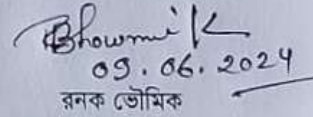 Bhowmik
09.06.2024
রনক ভৌমিক